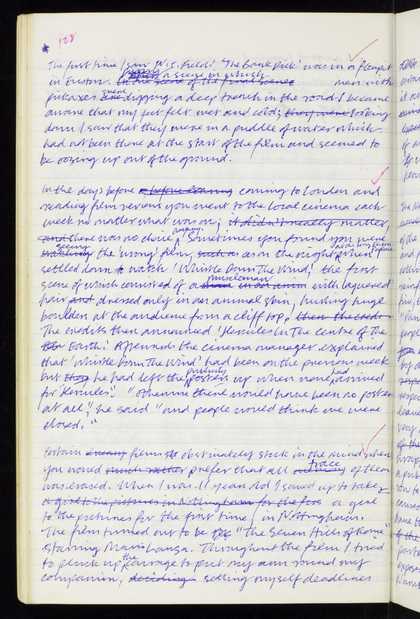 * 128
The first time I saw W.C. Fields' 'The Bank Dick' was in a fleapit
in Euston. During a scene in which men with
pickaxes were digging a deep trench in the road I became
aware that my feet felt wet and cold; they were looking
down I saw that they were in a puddle of water which
had not been there at the start of the film and seemed to
be oozing up out of the ground.
In the days before coming to London and
reading film reviews you went to the local cinema each
week no matter what was on; it didn't really matter
and there was no choice anyway. Sometimes you found you were
seeing the 'wrong' film, such as on the night when I
settled down to watch 'Whistle Down The Wind', the first
scene of which consisted of a muscleman with lacquered
hair and dressed only in an animal skin, hurling huge
boulders at the audience from a cliff top, then the credits
The credits then announced 'Hercules in The Centre of The
Earth'. Afterwards the cinema manager explained
that 'Whistle Down The Wind' had been on the previous week
but he had left the publicity posters up when none had arrived
for 'Hercules'. "Otherwise there would have been no posters
at all," he said "and people would think we were
closed."
Certain films do obstinately stick in the mind when
you would much rather prefer that all trace of them
was erased. When I was 11 years old I saved up to take
a girl to the pictures in Nottingham for the first a girl
to the pictures for the first time, in Nottingham.
The film turned out to be "The Seven Hills of Rome"
starring Mario Lanza. Throughout the film I tried
to pluck up the courage to put my arm round my
companion, deciding setting myself deadlines